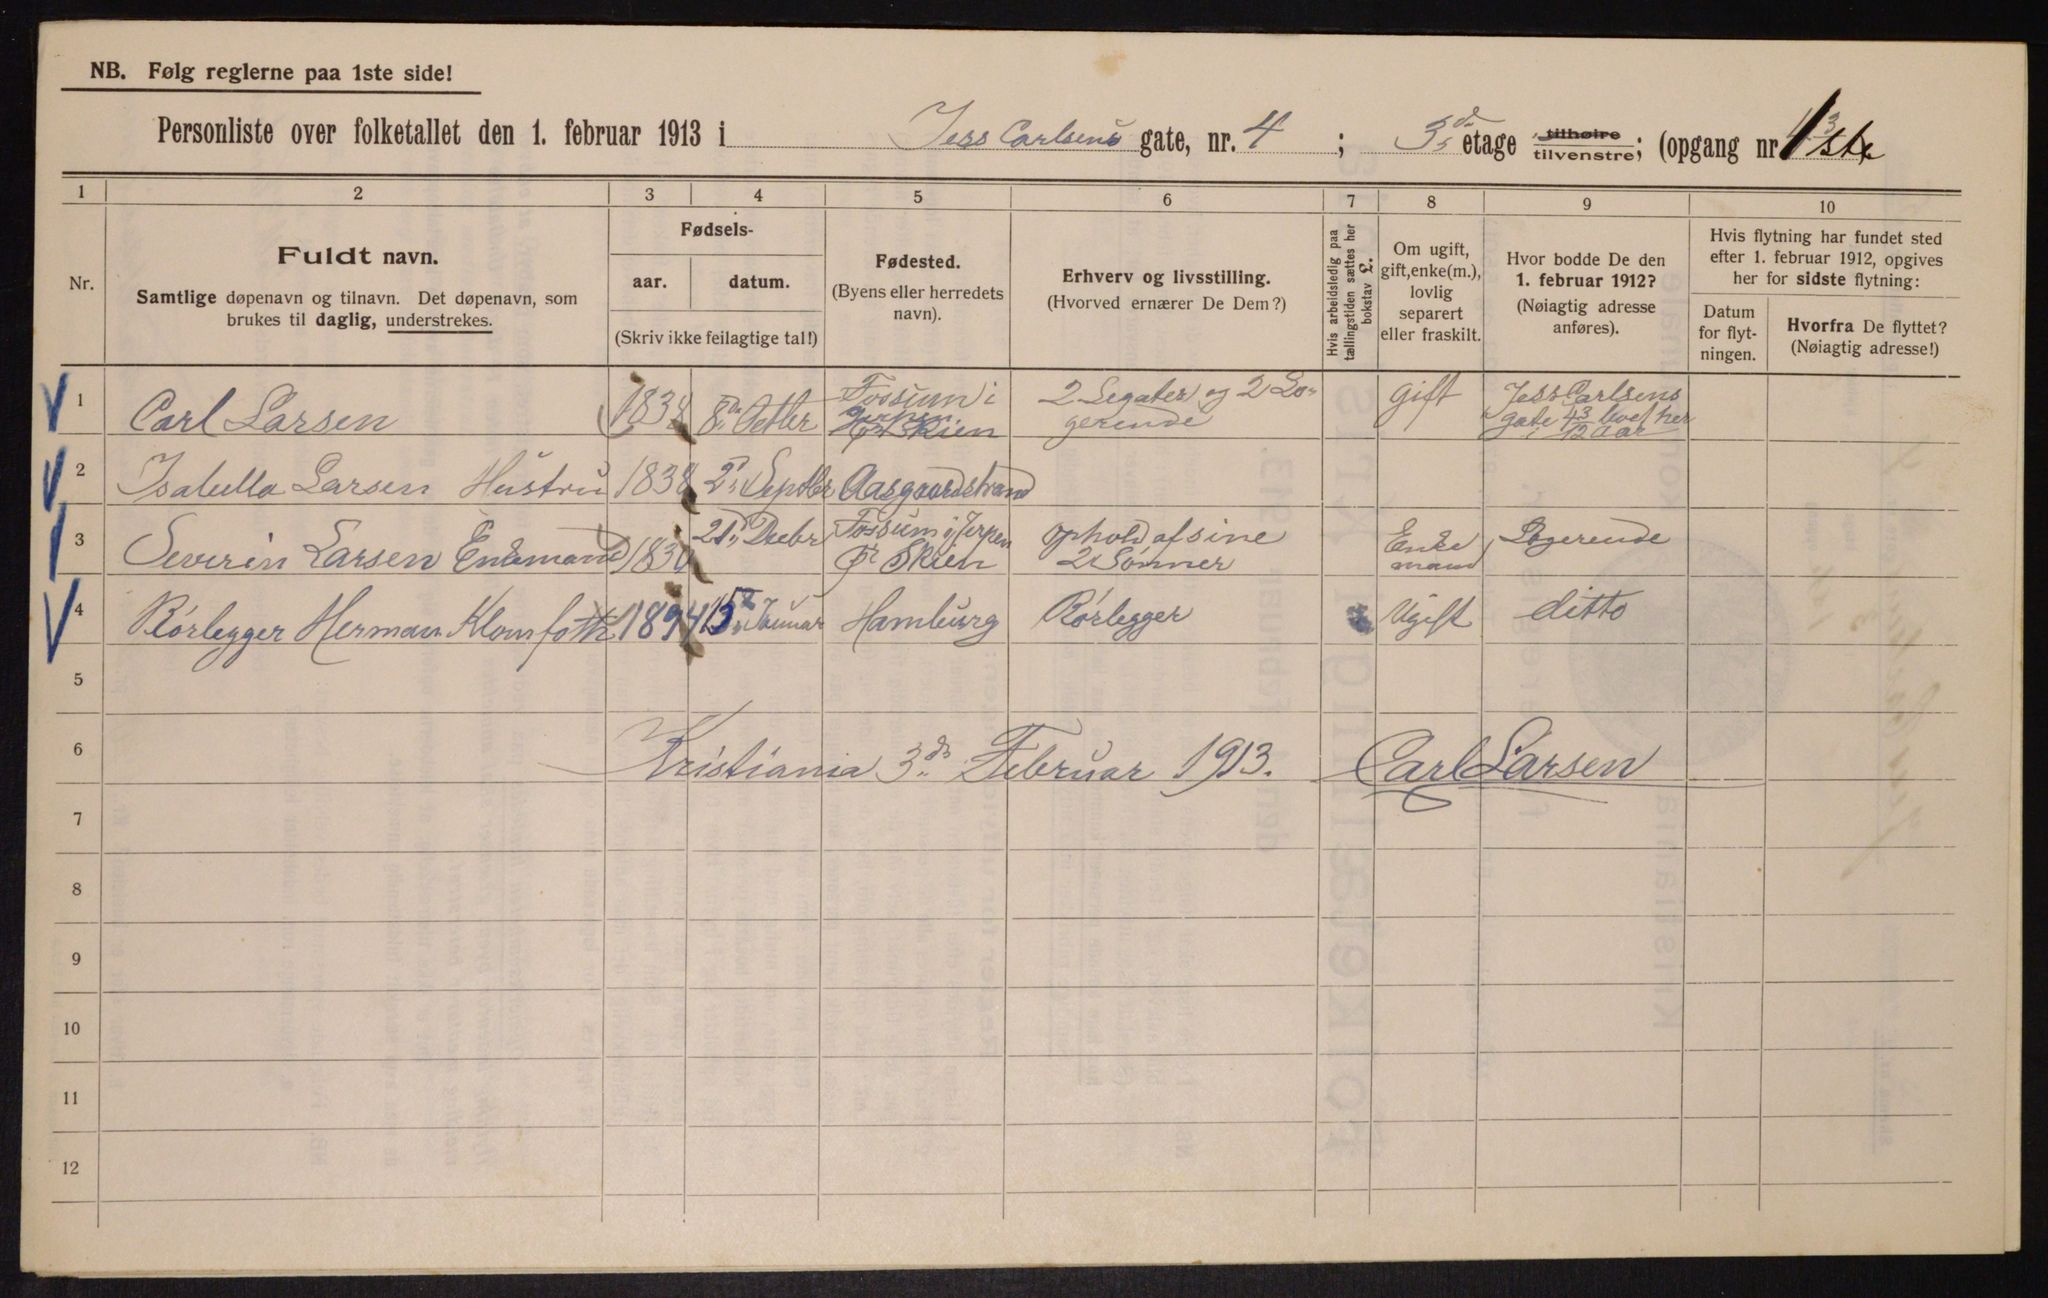 NB. Følg reglerne paa 1ste side!
Personliste over folketallet den 1. februar 1913 i Jess Carlsens gate, nr. 4 ; 3 d etage tilhøire tilvenstre; (opgang nr 1ste
1 2 3 4 5 6 7 8 9 10
Nr.
Fuldt navn.
Samtlige døpenavn og tilnavn. Det døpenavn, som
brukes til daglig, understrekes.
Fødsels-
aar. datum.
(Skriv ikke feilagtige tal!)
Fødested.
(Byens eller herredets
navn).
Erhverv og livsstilling.
(Hvorved ernærer De Dem?)
Hvis arbeidsledig paa
tællingstiden sættes her
bokstav L.
Om ugift,
gift, enke(m.),
lovlig
separert
eller fraskilt.
Hvor bodde De den
1. februar 1912?
(Nøiagtig adresse
anføres).
Hvis flytning har fundet sted
efter 1. februar 1912, opgives
her for sidste flytning:
Datum
for flyt-
ningen.
Hvorfra De flyttet?
(Nøiagtig adresse!)
1 Carl Larsen 1838 8de Octbr Fossum i Skien 2 Legater og 2 Lo-
gerende gift Jess Carlsens
gate 4 3 her
12 Aar
2 Isabella Larsen Hustru 1838 2 Septbr Aasgaardstrand
3 Severin Larsen Enkemand 1830 21 Decbr Fossum i Jerpen
pr Skien ophold af sine
2 Sønner Enke
mand Logerende
4 Rørlegger Herman 1894 15 Januar Hamburg Rørlegger Ugift ditto
5
6 Kristiania 3de Februar 1913. Carl Larsen
7
8
9
10
11
12